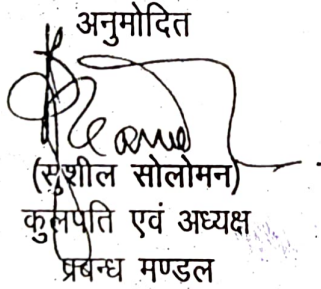 अनुमोदित
(सुशील सोलोमन)
कुलपति एवं अध्यक्ष
प्रबन्ध मण्डल